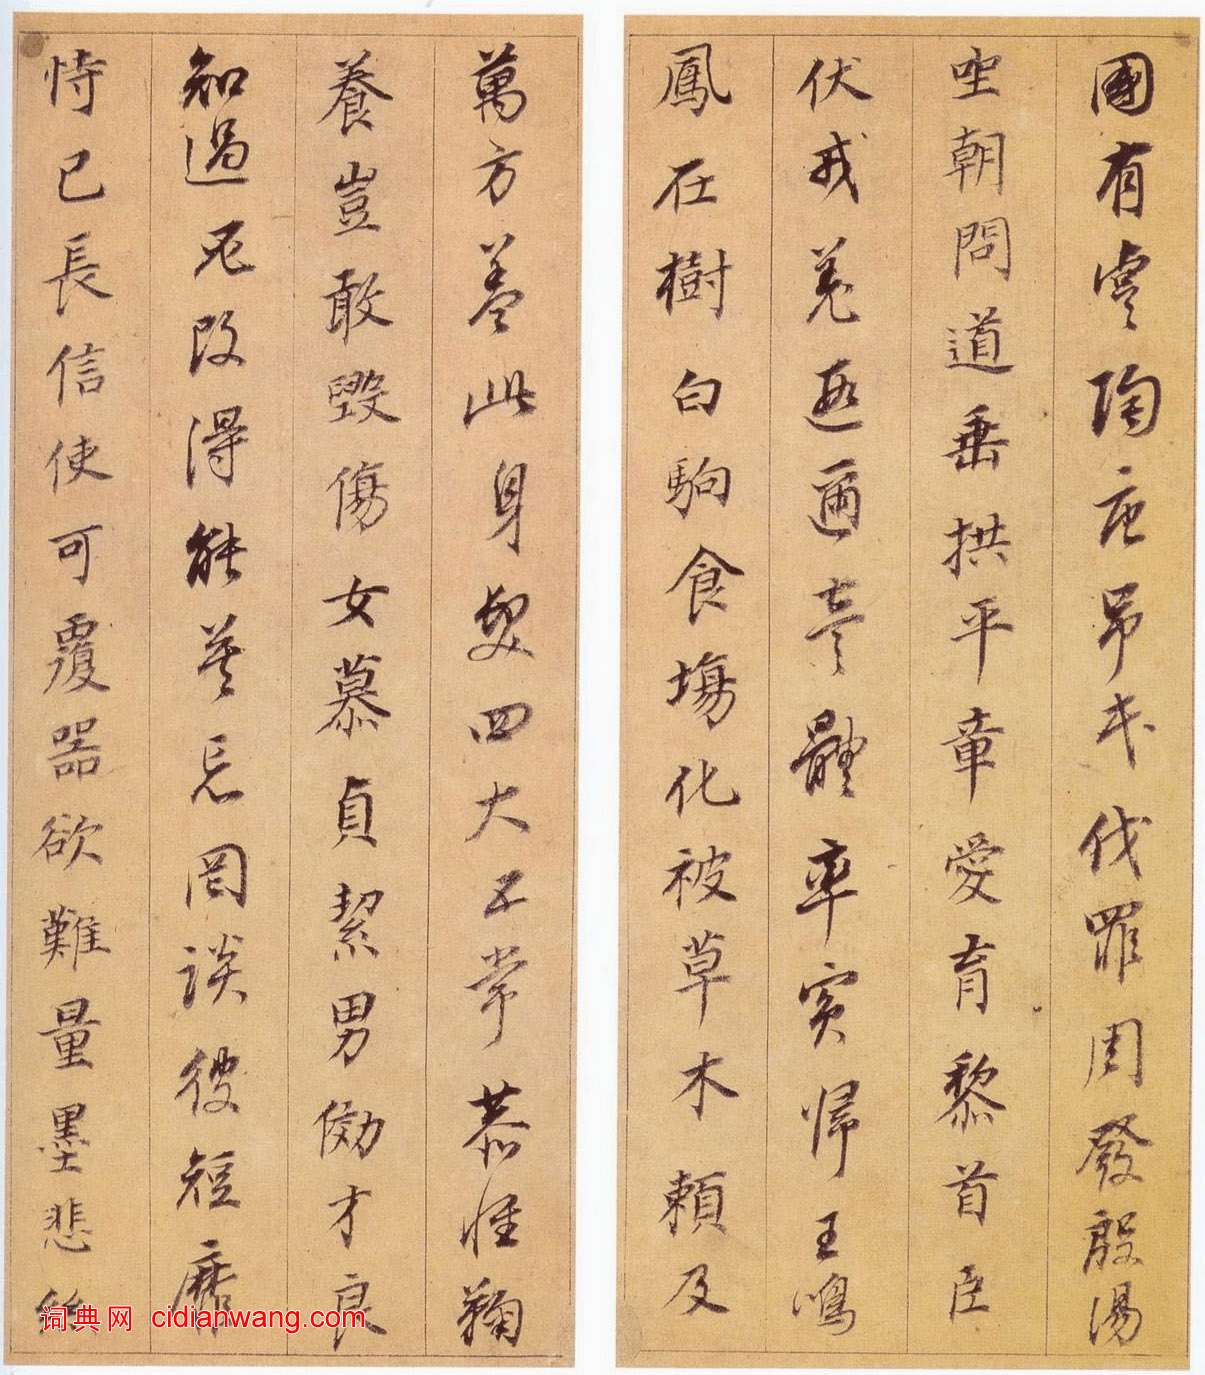 國有虞陶唐弔民伐罪周發殷湯
坐朝問道垂拱平章愛育黎首臣
伏戎羌遐邇壹體率賓歸王鳴
鳳在樹白駒食塲化被草木賴及
萬方蓋此身髮四大五常恭惟鞠
養豈敢毀傷女慕貞絜男俲才良
知過必改得能莫忘罔談彼短靡
恃己長信使可覆器欲難量墨悲絲
词典网 cidianwang.com